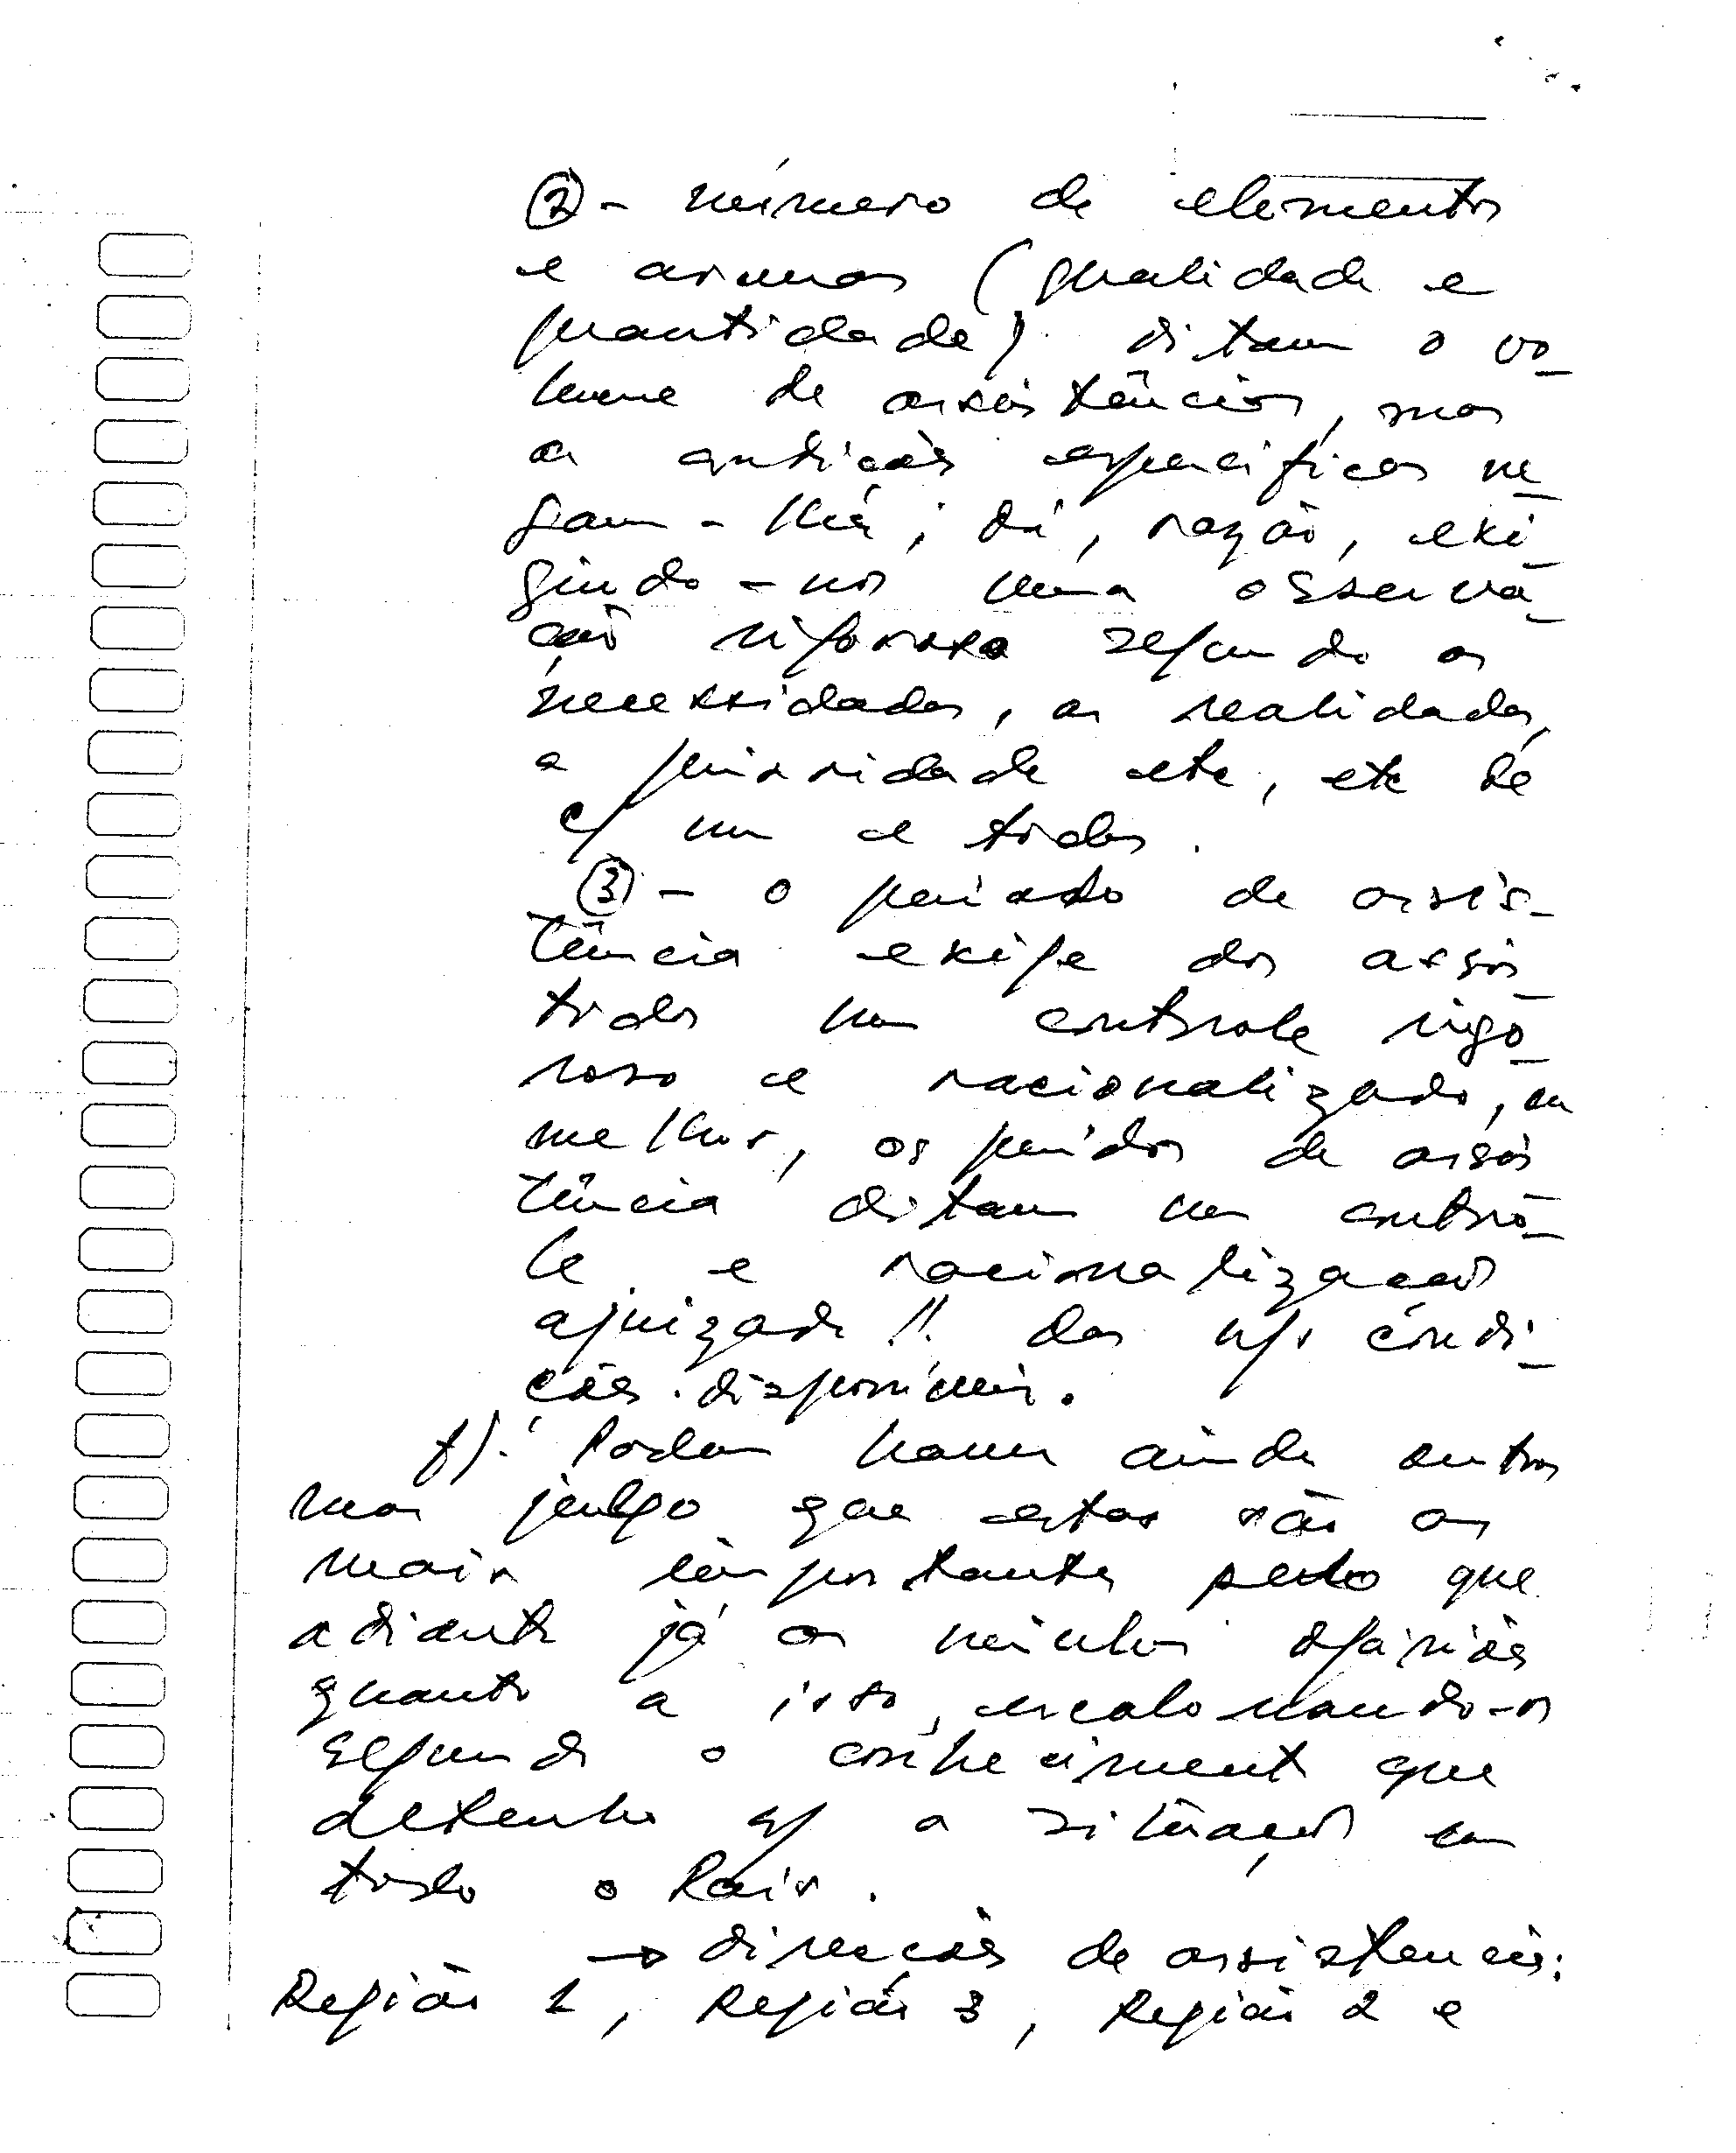 ② - número de elementos
e armas (qualidade e
quantidade) ditam o vo-
lume de assistências, mas
as condições específicas ne-
gam-lhe; dá, razão, exi-
gindo-nos uma observa-
ção rigorosa segundo as
necessidades, as realidades,
a prioridade etc, etc de
c/ um e todos.
③ - o período de assis-
tência exige dos assis-
tidos um controle rigo-
roso e racionalizado, ou
melhor, os períodos de assis-
tência ditam um contro-
le e racionalização
ajuizada!! das n/s condi-
ções disponíveis.
f). Podem haver ainda outras
mas julgo que estas são as
mais importantes pelo que
adiante já as minhas opiniões
quanto a isso, escalonando-os
segundo o conhecimento que
detenho s/ a situação em
todo o País.
→ direcções de assistência:
Região 1, Região 3, Região 2 e